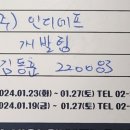 주) 인디제프
개발팀
김동훈 220083
024.01.23(화) ~ 01.27(토) TEL 02-
024.01.19(금) ~ 01.27(토) TEL 02-